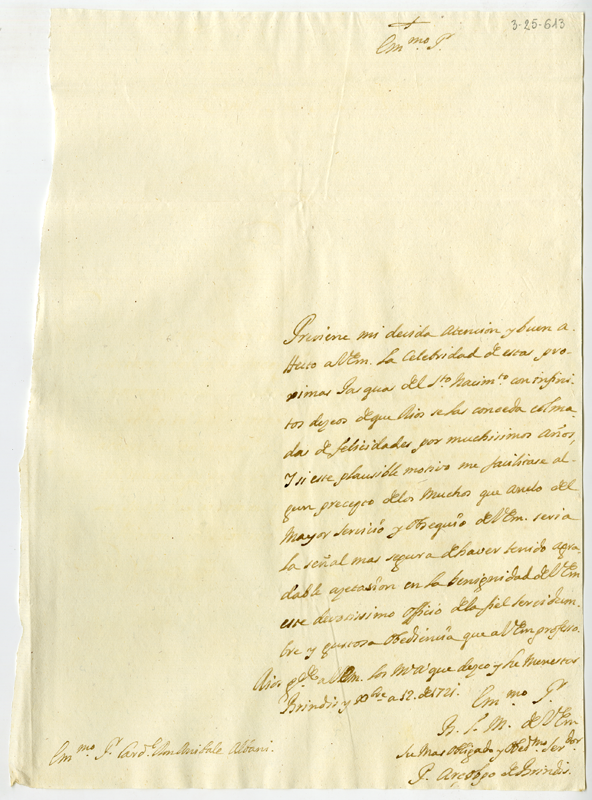 3-25-613
+
Em.mo S.r
Previene mi devida atencion y buen a-
fecto a V Em. la Celebridad de estas pro-
ximas Pasquas del S.to Nacim.to con infini-
tos deseos de que Dios se las conceda colma
das de felicidades por muchissimos años,
Y si este plausible motivo me facilitase al-
gun precepto de los muchos que anelo del
Mayor servicio y obsequio de V Em. seria
la señal mas segura de haver tenido agra-
dable azetasion en la benignidad de V Em
este devotissimo officio de la fiel servidum-
bre y gustosa obediencia que a V Em profeso.
Dios g.de a V Em. los M.s a.s que deseo y he Menester
Brindis y Xbre a 12 de 1721.
Em.mo S.r
B. L. M. de V Em
Su Mas obligado y obed.mo Ser.dor
P. Arçobpo de Brindis.
Em.mo S.r Card.l Don Anibale Albani.